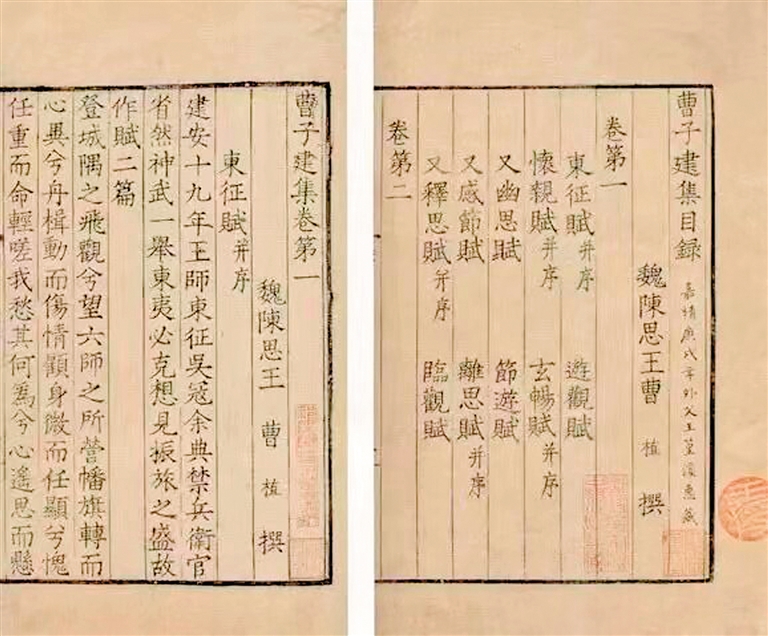 曹子建集目録 嘉靖庚戌年外父王篁溪惠藏
魏陳思王曹 植 撰
卷第一
東征賦并序 遊觀賦
懷親賦并序 玄暢賦并序
又幽思賦 節遊賦
又感節賦 離思賦并序
又釋思賦并序 臨觀賦
卷第二
曹子建集卷第一
魏陳思王 曹 植 撰
東征賦并序
建安十九年王師東征吳寇余典禁兵衛官
省然神武一舉東夷必克想見振旅之盛故
作賦二篇
登城隅之飛觀兮望六師之所營幡旗轉而
心異兮舟楫動而傷情顧身微而任顯兮愧
任重而命輕嗟我愁其何爲兮心遙思而懸